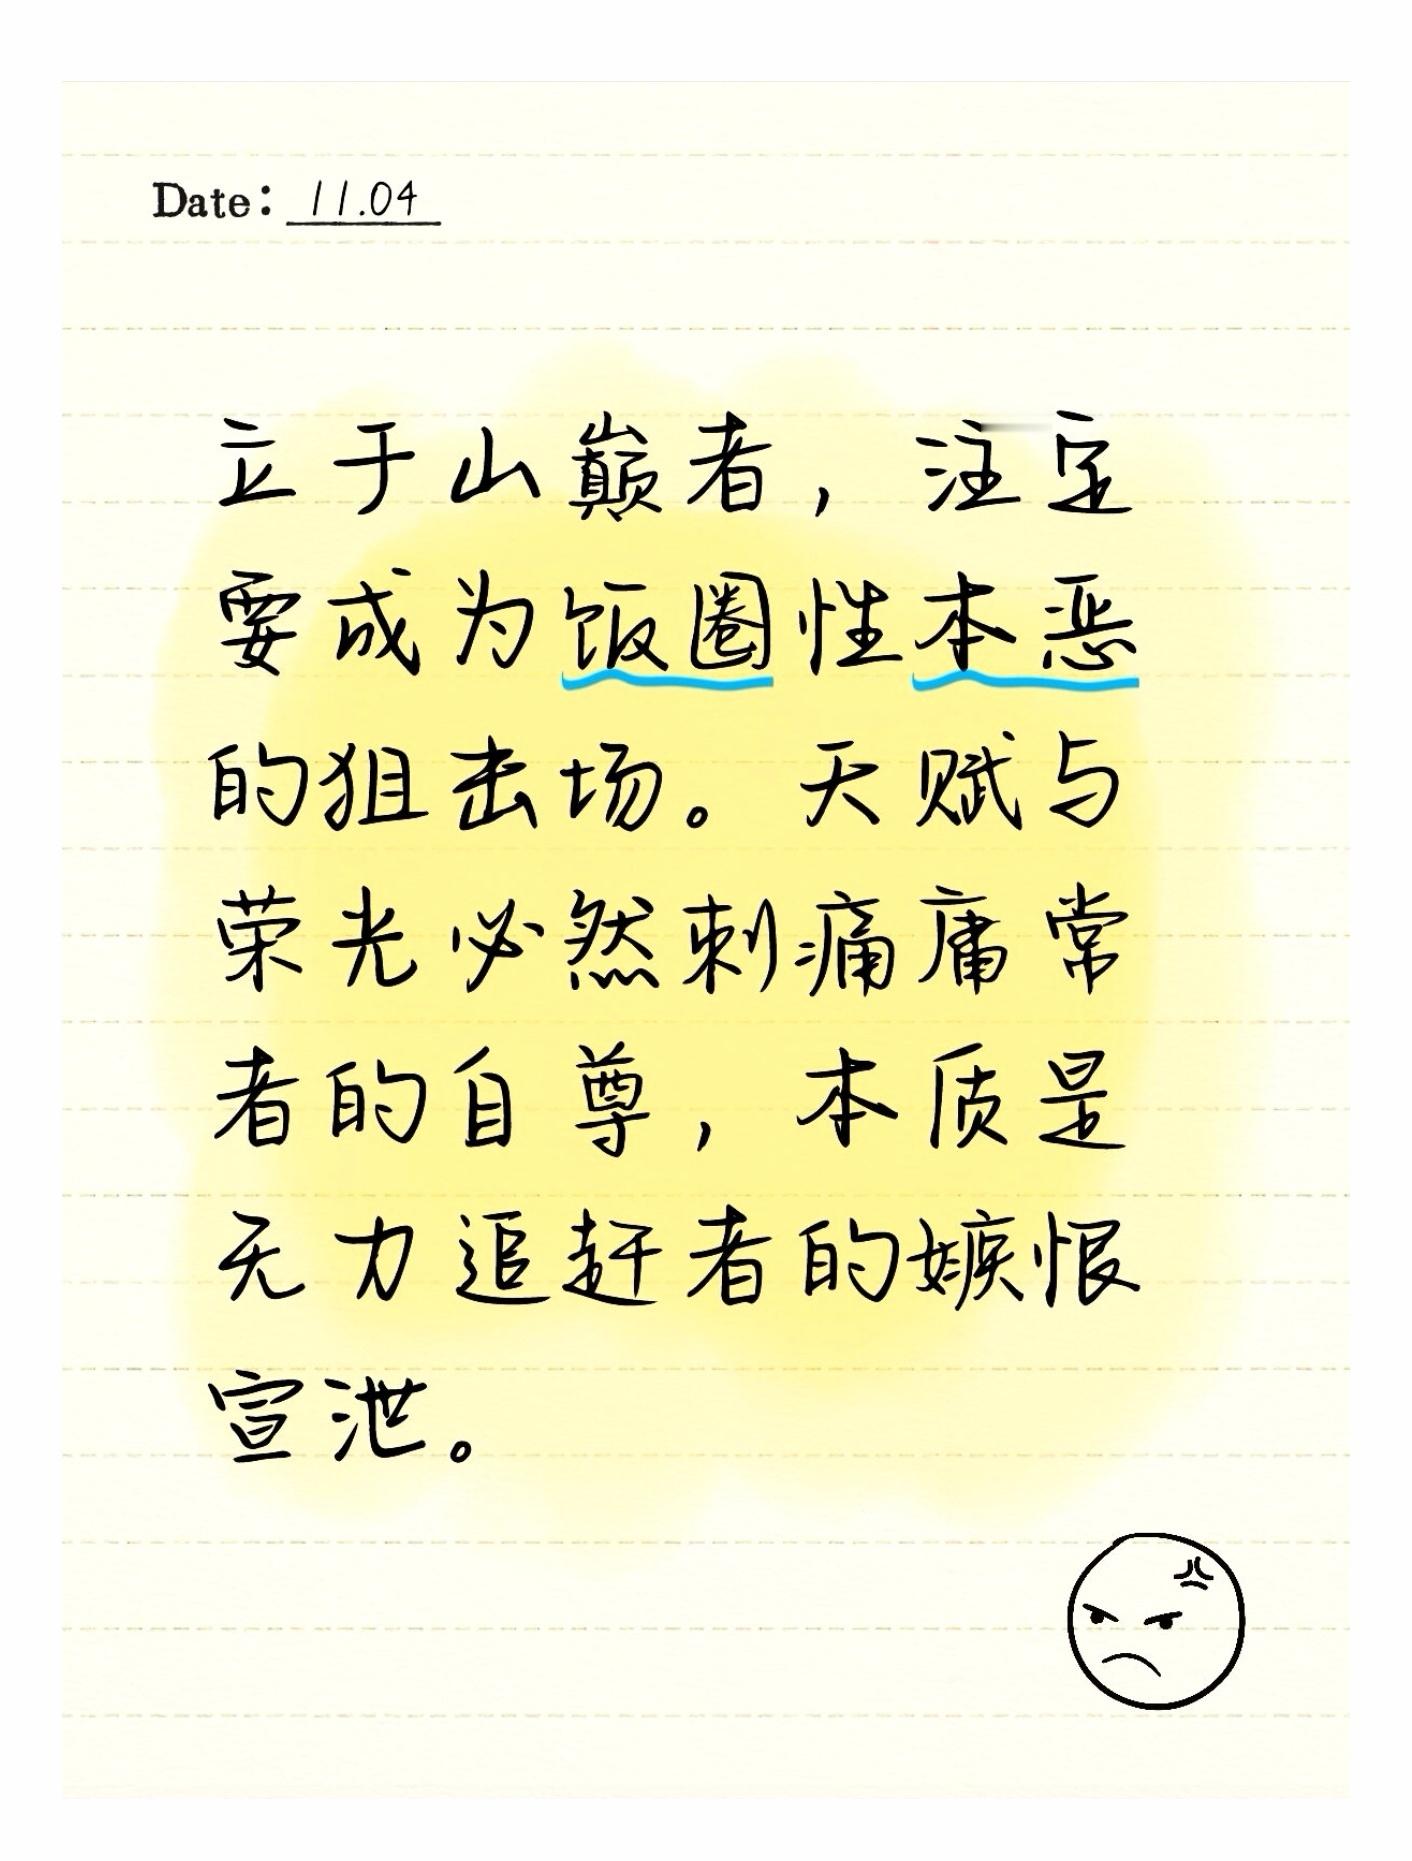 Date: 11.04
立于山巅者，注定
要成为饭圈性本恶
的狙击场。天赋与
荣光必然刺痛庸常
者的自尊，本质是
无力追赶者的嫉恨
宣泄。